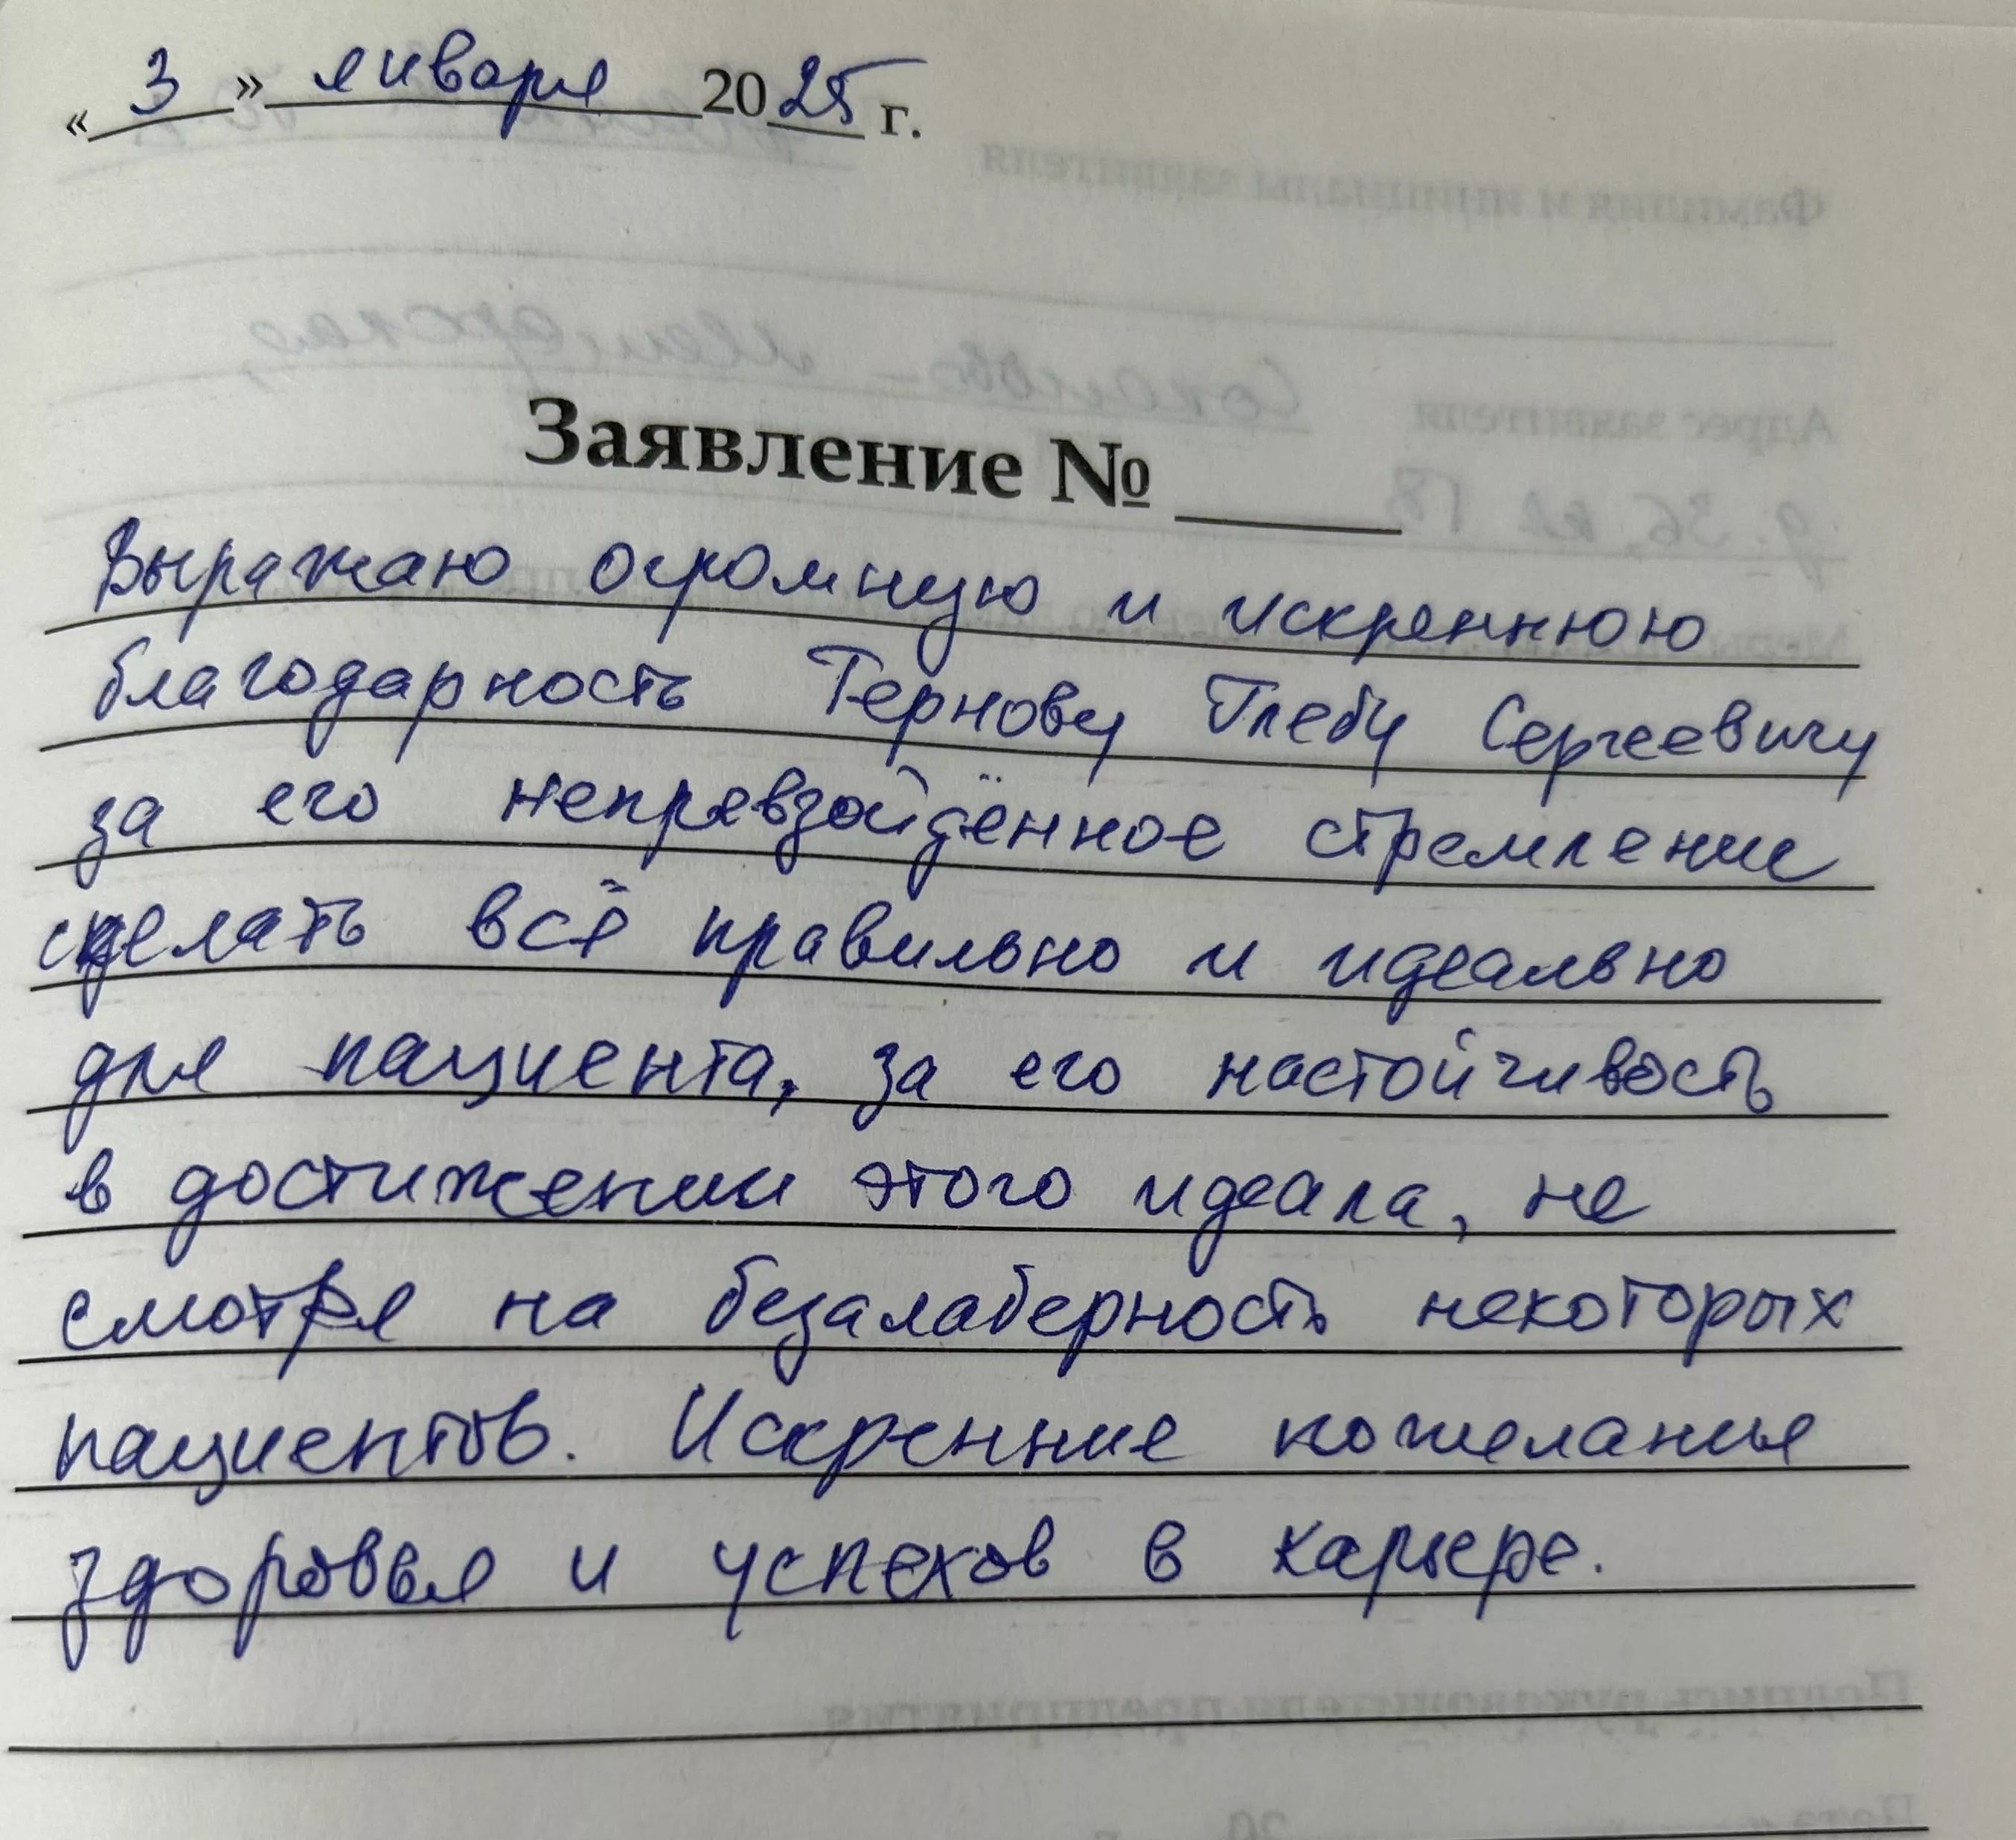 « 3 » января 2025 г.
Заявление № ____
Выражаю огромную и искреннюю
благодарность Тернову Глебу Сергеевичу
за его непревзойдённое стремление
сделать всё правильно и идеально
для пациента, за его настойчивость
в достижении этого идеала, не
смотря на безалаберность некоторых
пациентов. Искренние пожеланье
здоровья и успехов в карьере.